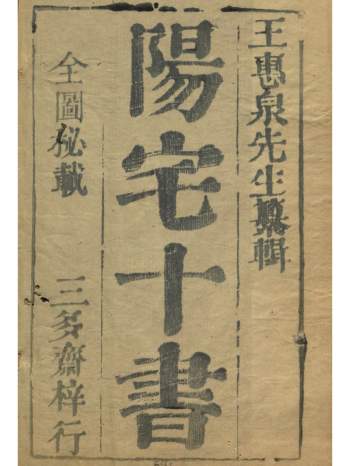 王惠泉先生纂輯
陽宅十書
全圖秘載
三多齋梓行